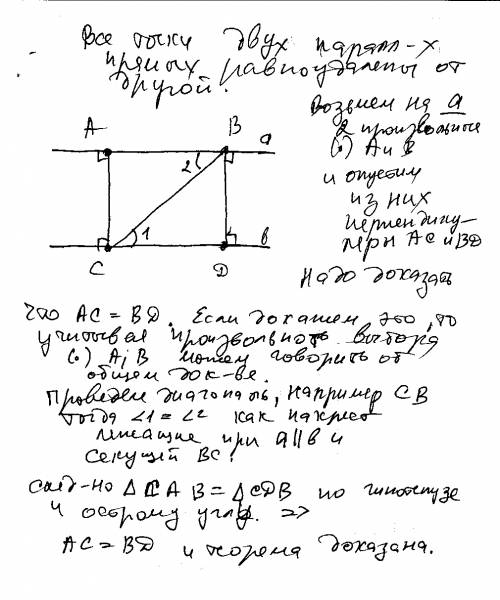 Все точки двух паралл-х
прямых равноудалены от
другой.
A
B
a
2
1
C
D
в
Возьмем на a
2 произвольные
(•) A и B
и опустим
из них
перпендику-
ляры AC и BD
Надо доказать
что AC = BD. Если докажем это, то
учитывая произвольность выбора
(•) A, B можем говорить об
общем док-ве.
Проведем диагональ, например CB
тогда ∠1 = ∠2 как накрест
лежащие при a || в и
секущей BC.
След-но Δ CAB = Δ CDB по гипотенузе
и острому углу. =>
AC = BD и теорема доказана.